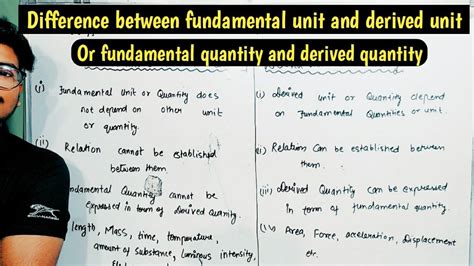 Difference between fundamental unit and derived unit
Or fundamental quantity and derived quantity
(i) Fundamental Unit or Quantity does
not depend on other unit
or quantity.
(ii) Relation cannot be established
between them.
undamental Quantity cannot be
expressed in term of derived quantity.
length, Mass, time, temperature,
amount of substance, Luminous intensity,
(i) Derived unit or Quantity depend
on Fundamental Quantities or unit.
(ii) Relation Can be established between
them.
(iii) Derived Quantity can be expressed
in term of fundamental quantity.
(iv) Area, Force, acceleration, Displacement
etc.